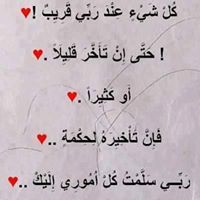 كُلْ شَيْءِ عنْدَ رَبِّي قَرِيبٌ !♥
! حَتَّى إِنْ تَأخَّرَ قَلِيلاً .♥
أَو كَثِيرَاً .♥
فَإِنَّ تَأخِيرَهُ لِحكْمَةٍ ..♥
رَبِّـي سَلَّمْتُ كُلْ أمُورِي إلَيْكَ ..♥